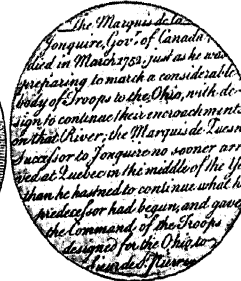 The Marquis de la
Jonquire, Gov.r of Canada
died in March 1752. just as he was
preparing to march a considerable
body of Troops to the Ohio, with de-
sign to continue their encroachments
on that River; the Marquis de Quesne
Successor to Jonquere no sooner arri
ved at Quebec in the middle of the Y
than he hastned to continue what h
predecessor had begun, and gave
the Command of the Troops
designed for the Ohio, to